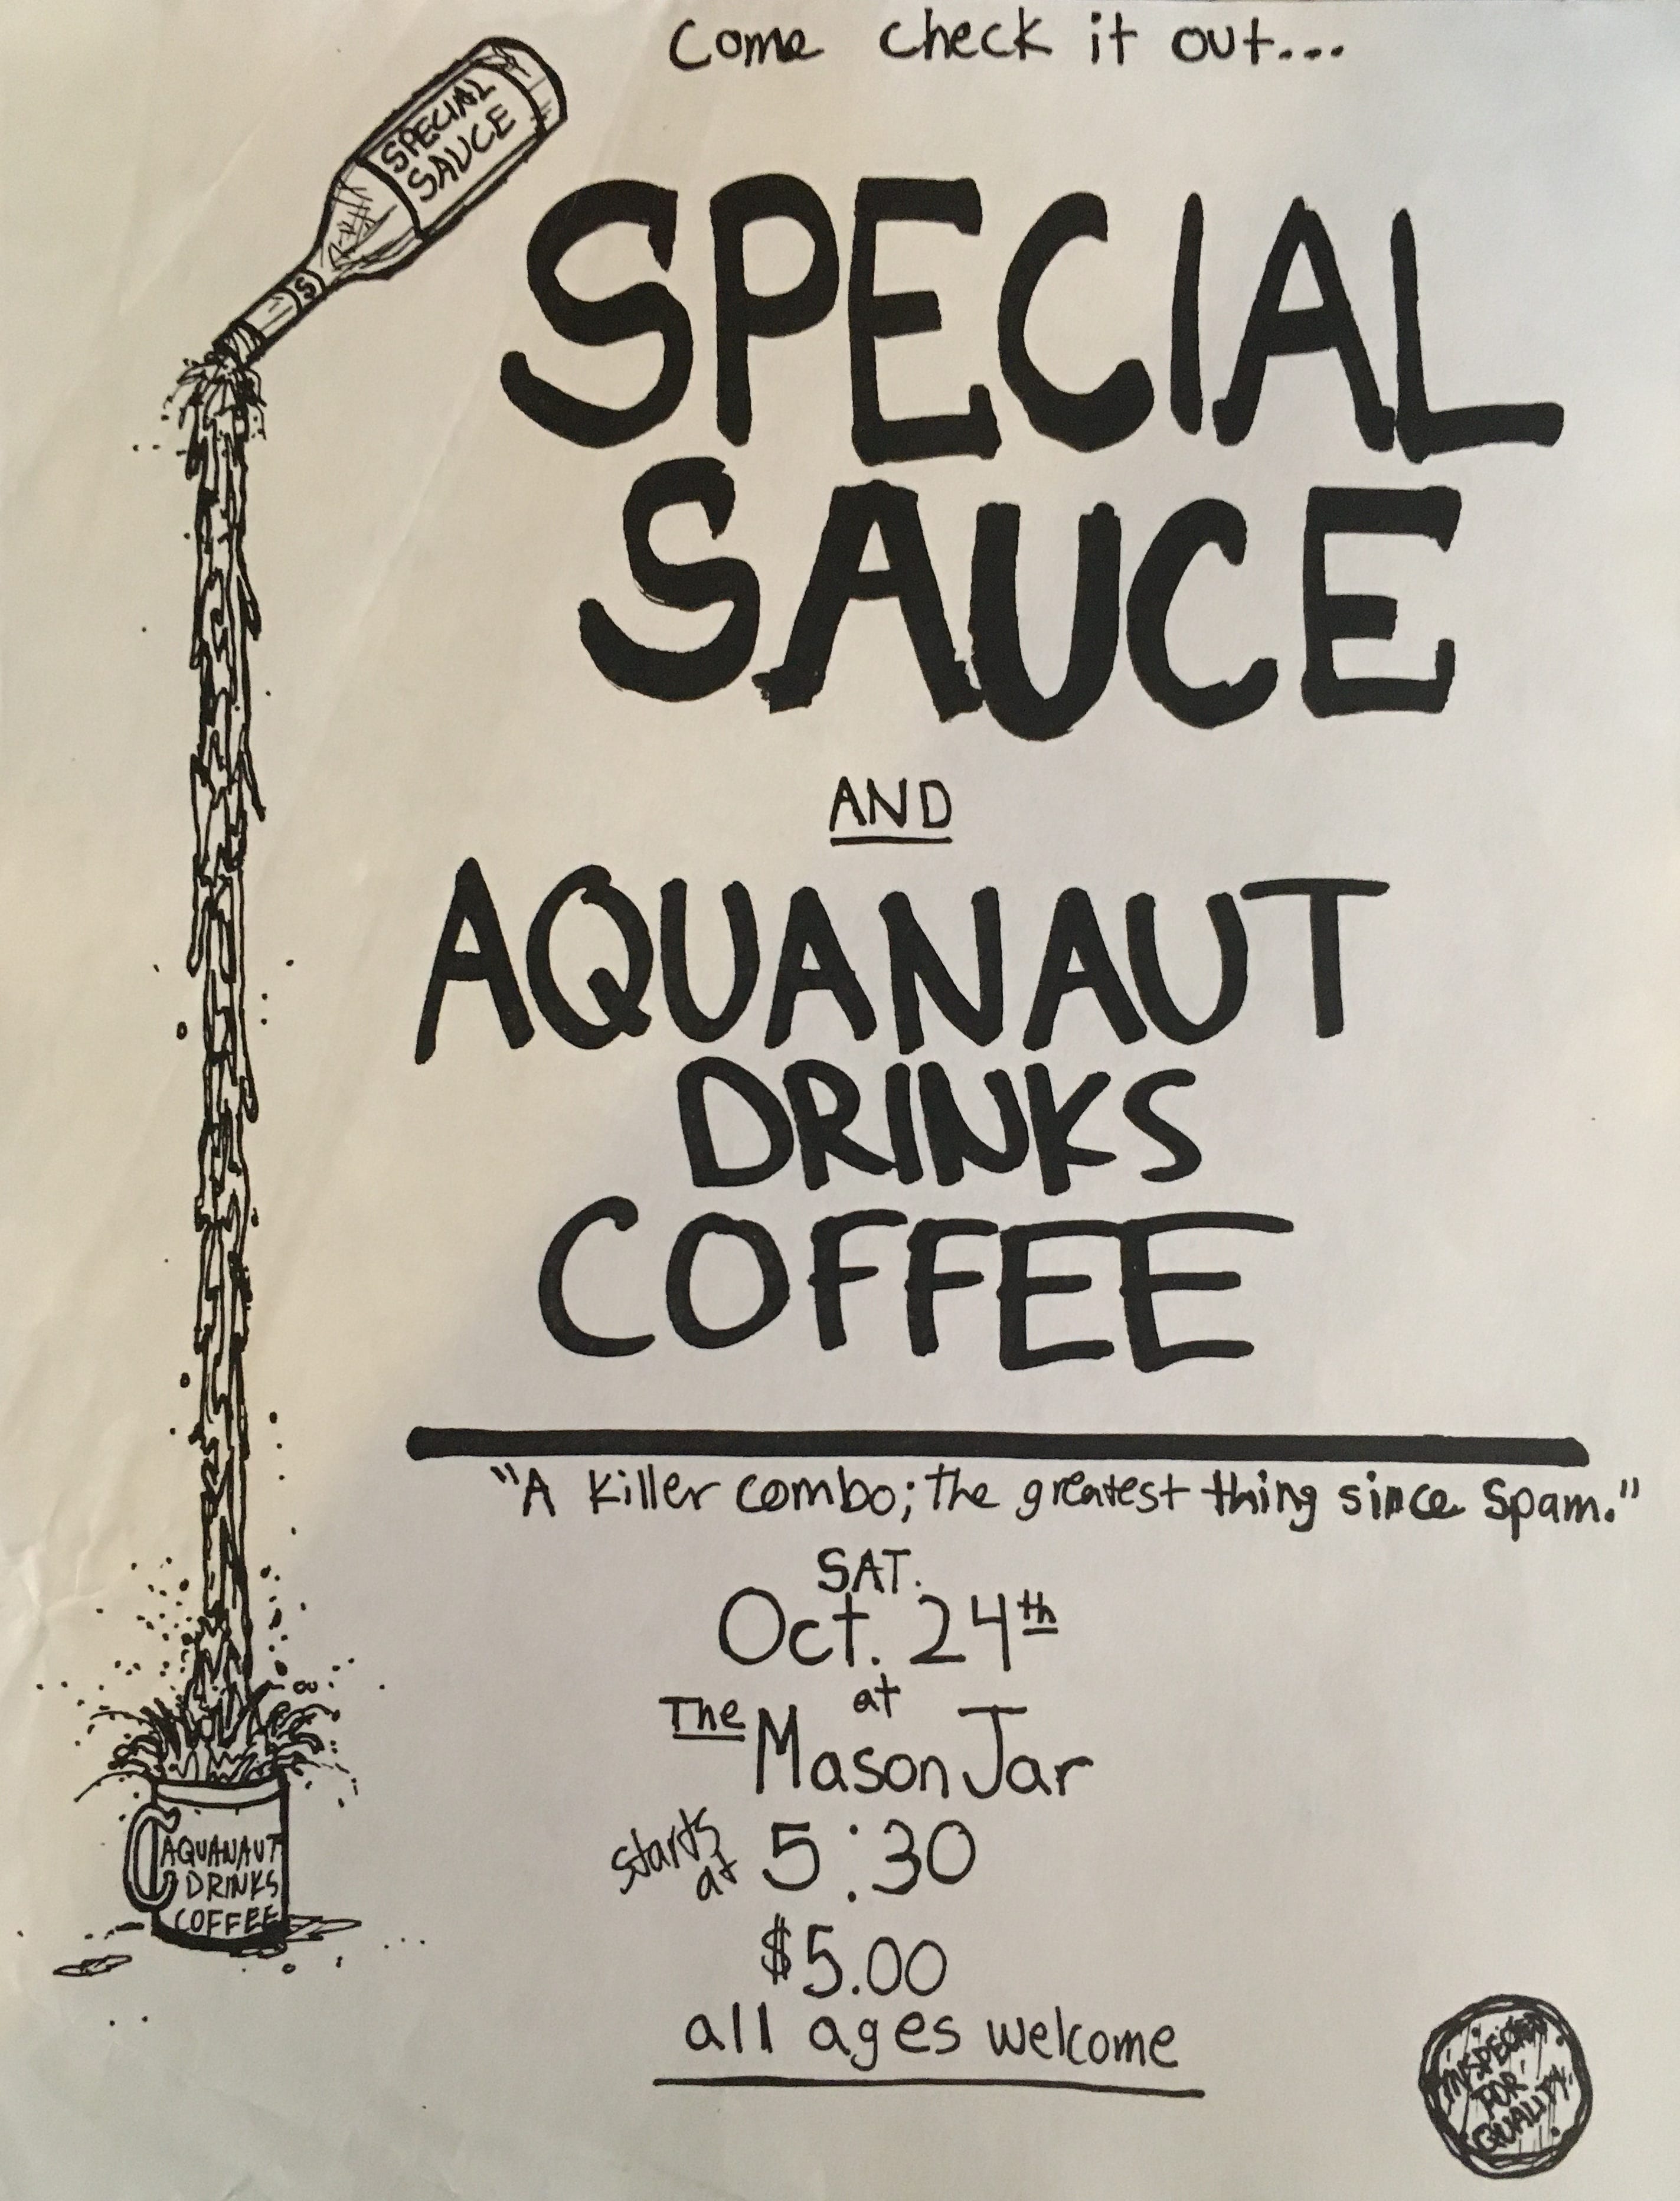 Come check it out...
SPECIAL
SAUCE
S
SPECIAL
SAUCE
AND
AQUANAUT
DRINKS
COFFEE
"A killer combo; the greatest thing since Spam."
SAT.
Oct. 24th
at
The Mason Jar
starts
at 5:30
$5.00
all ages welcome
AQUANAUT
DRINKS
COFFEE
INSPECTED
FOR
QUALITY